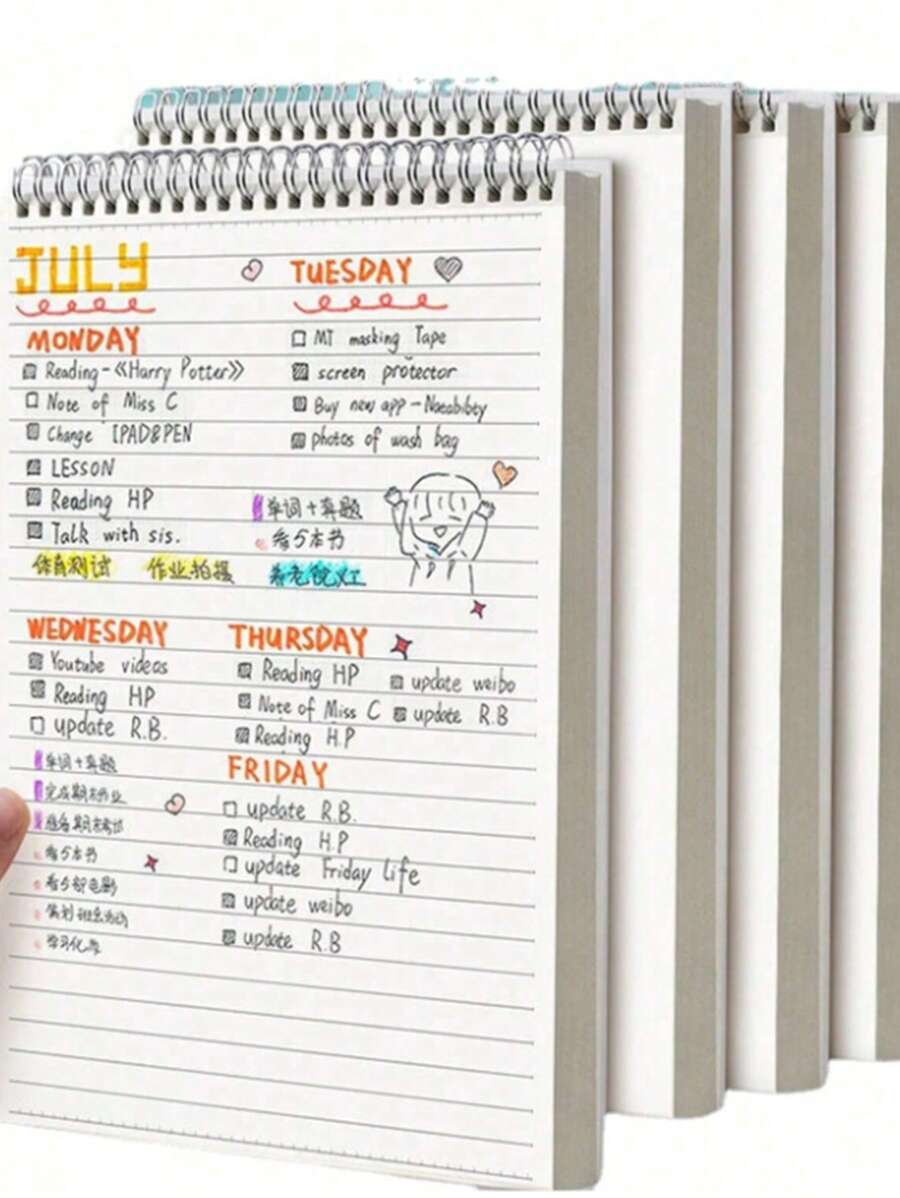 JULY
MONDAY
Reading-《Harry Potter》
Note of Miss C
Change IPAD&PEN
LESSON
Reading HP
Talk with sis.
体育测试 作业拍摄 养老院义工
TUESDAY
MT masking Tape
screen protector
Buy new app-Notability
photos of wash bag
单词+真题
看5本书
WEDNESDAY
Youtube videos
Reading HP
update R.B.
单词+真题
完成期末作业
准备期末考试
看5本书
看5部电影
学习化妆
THURSDAY
Reading HP
update weibo
Note of Miss C
update R.B
Reading H.P
FRIDAY
update R.B.
Reading H.P
update Friday Life
update weibo
update R.B